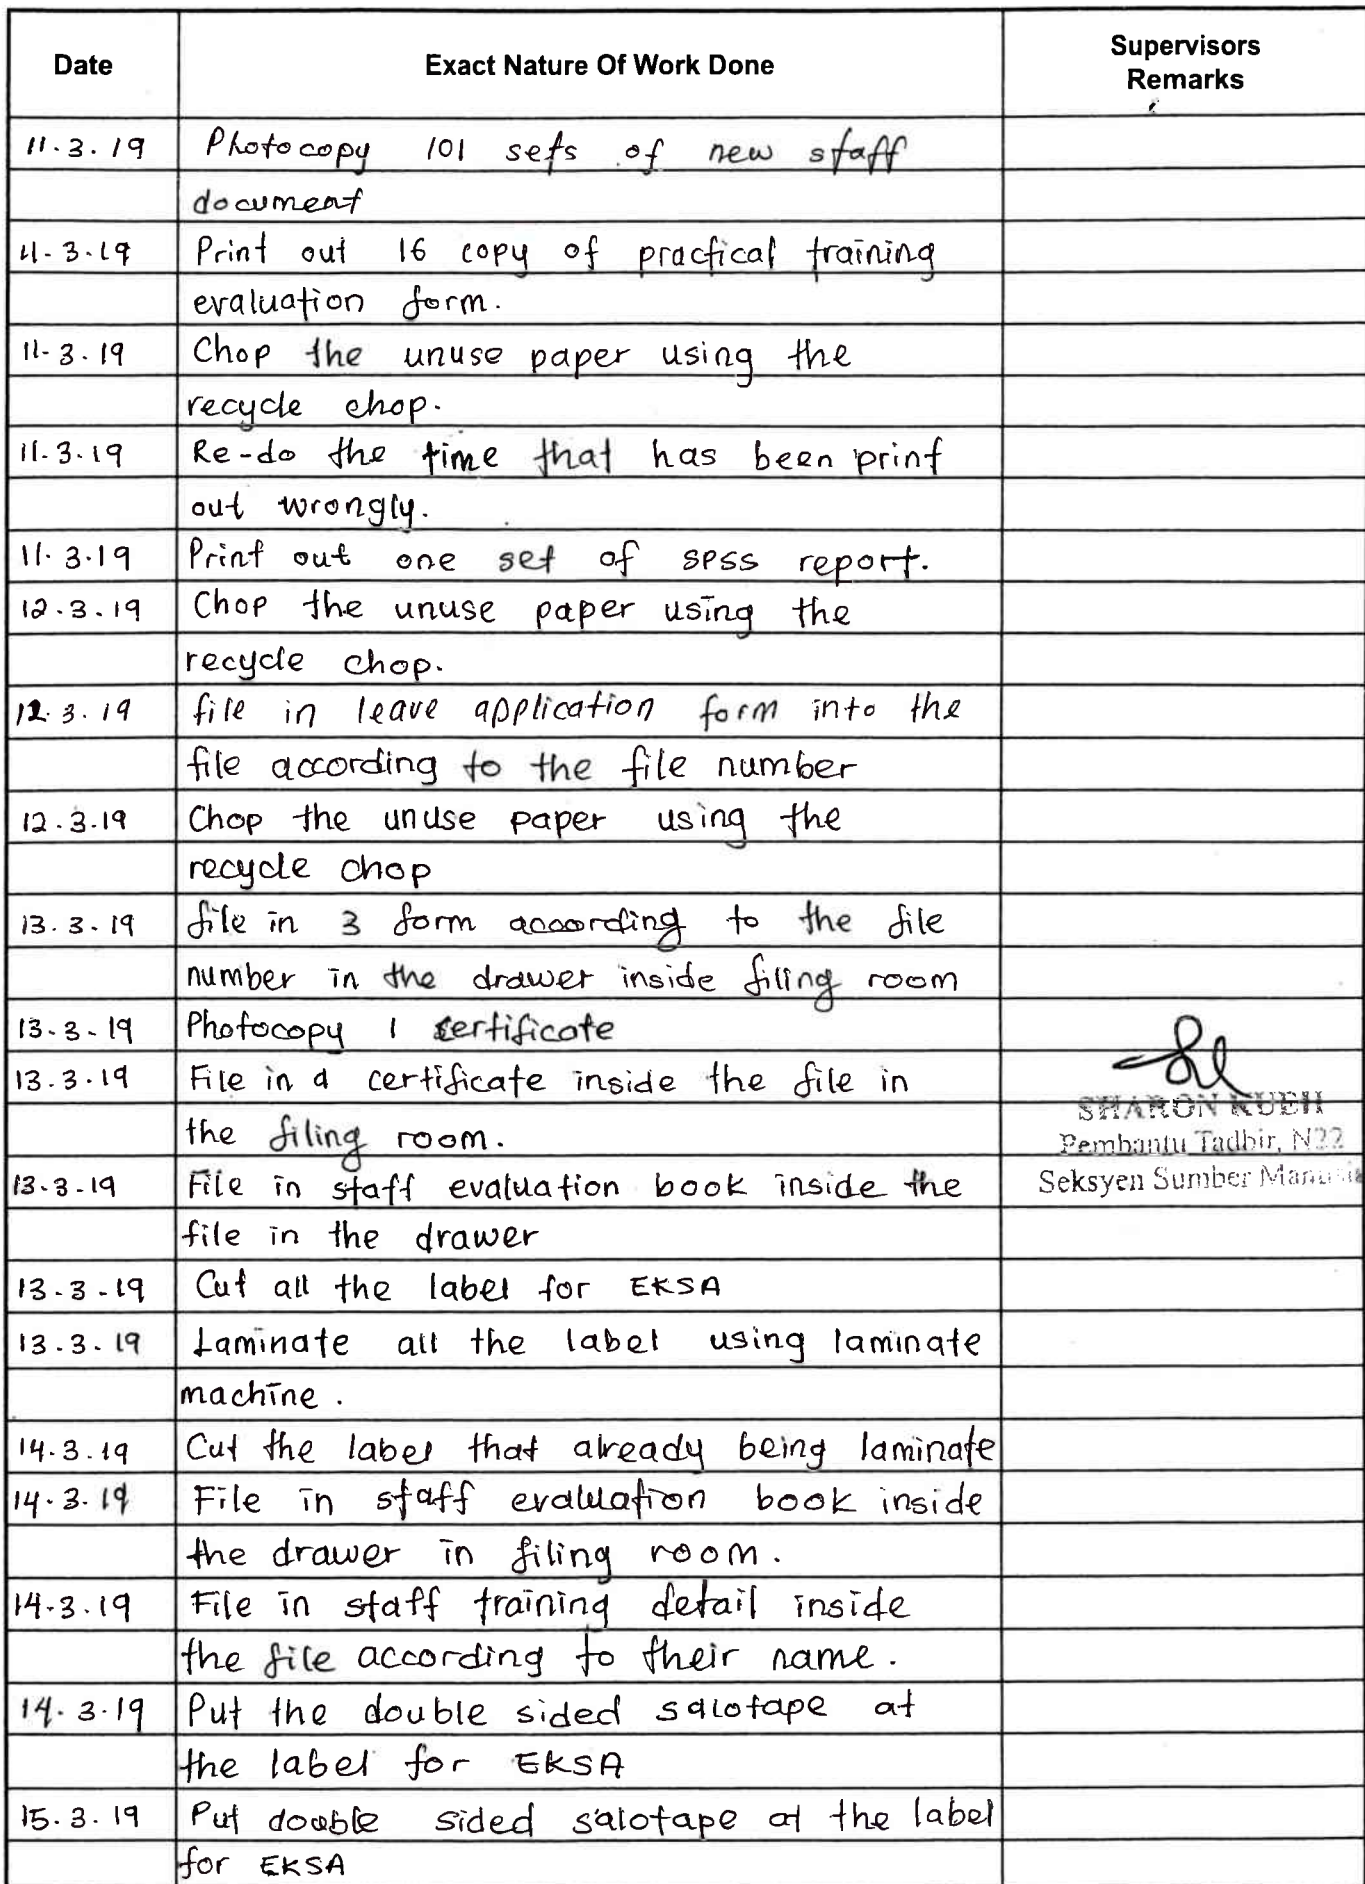 Date Exact Nature Of Work Done Supervisors
Remarks
11.3.19 Photocopy 101 sets of new staff
document
11.3.19 Print out 16 copy of practical training
evaluation form.
11.3.19 Chop the unuse paper using the
recycle chop.
11.3.19 Re-do the time that has been print
out wrongly.
11.3.19 Print out one set of SPSS report.
12.3.19 Chop the unuse paper using the
recycle chop.
12.3.19 file in leave application form into the
file according to the file number
12.3.19 Chop the unuse paper using the
recycle chop
13.3.19 file in 3 form according to the file
number in the drawer inside filing room
13.3.19 Photocopy 1 certificate
13.3.19 File in a certificate inside the file in
SHARON KUEH
the filing room. Pembantu Tadbir, N22
13.3.19 File in staff evaluation book inside the Seksyen Sumber Manusia
file in the drawer
13.3.19 Cut all the label for EKSA
13.3.19 Laminate all the label using laminate
machine.
14.3.19 Cut the label that already being laminate
14.3.19 File in staff evaluation book inside
the drawer in filing room.
14.3.19 File in staff training detail inside
the file according to their name.
14.3.19 Put the double sided salotape at
the label for EKSA
15.3.19 Put double sided salotape at the label
for EKSA